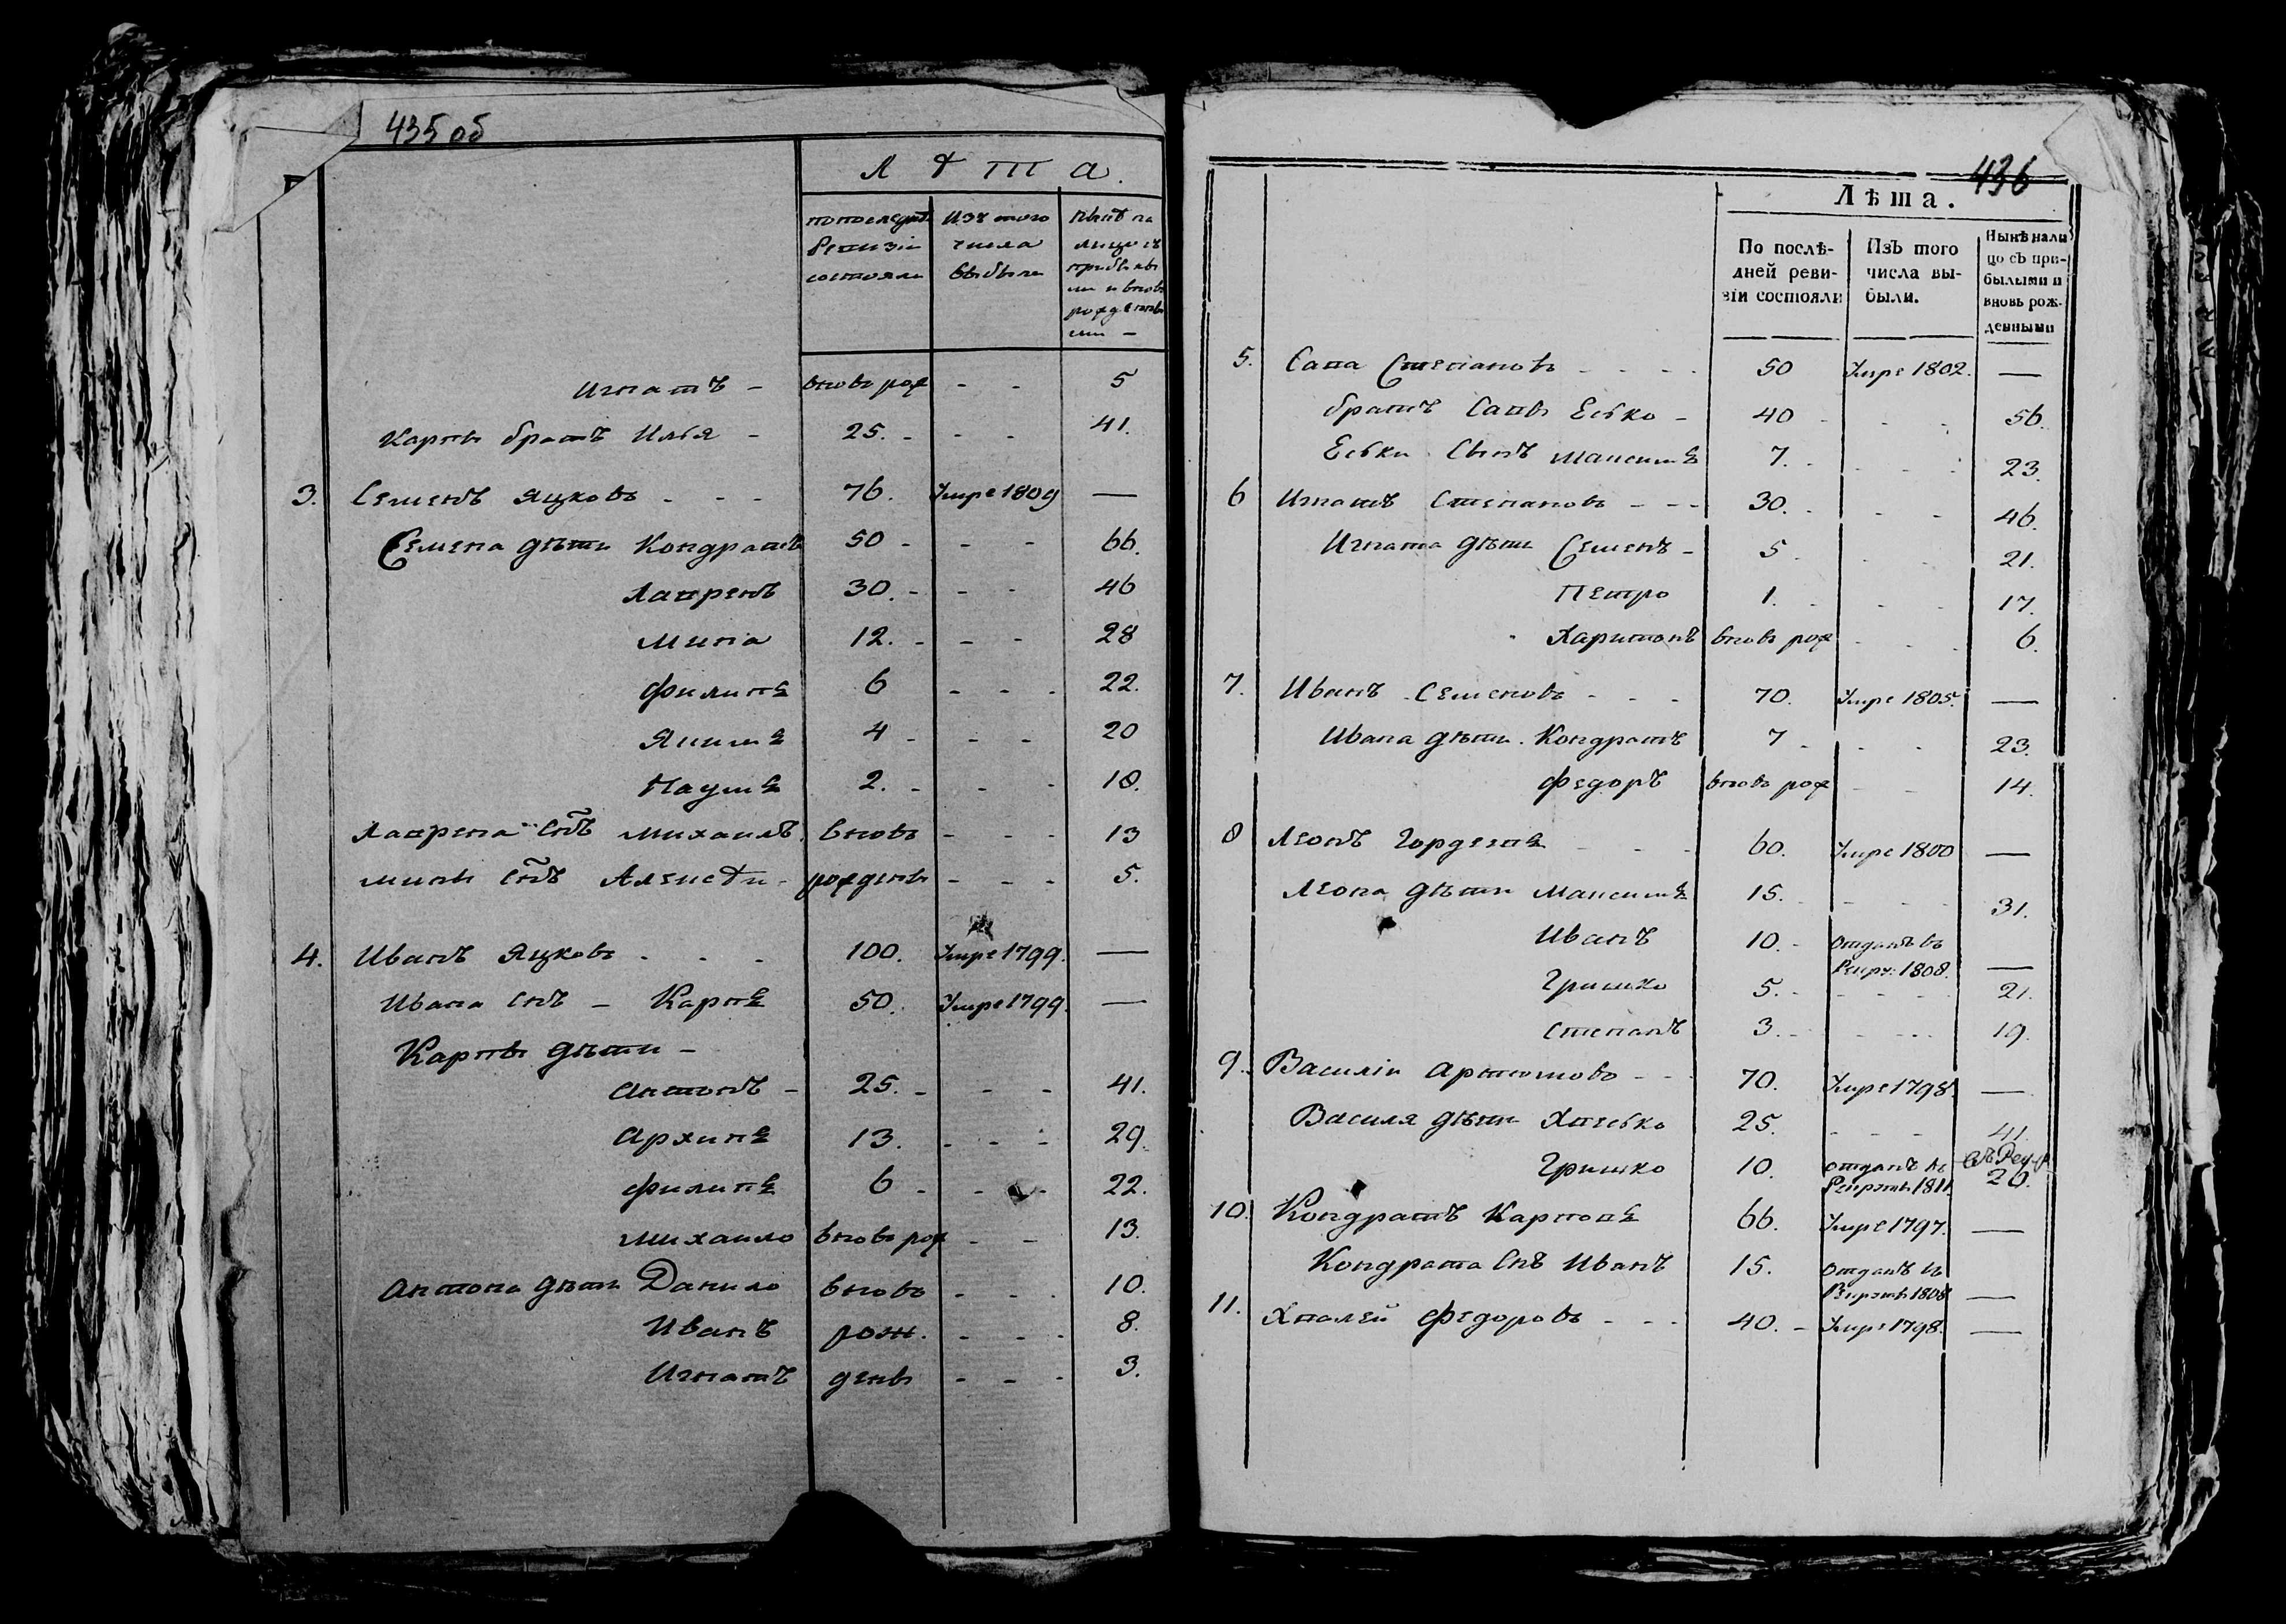 435 об
Лѣта.
по последне Ревизіи состояли | Изъ того числа выбыли | Нынѣ на лицо съ прибылыми и вновь рожденными
Игнатъ - вновь рож - - 5
Карпы братъ Илья - 25. - - - 41.
3. Семенъ Яцковъ - - - 76. Умре 1809 —
Семена дѣти Кондратъ 50 - - - 66.
Лавренъ 30. - - - 46
Мина 12. - - - 28
Филипъ 6 - - - 22.
Якимъ 4 - - - 20
Наумъ 2. - - - 18.
Лаврена снъ Михаилъ. вновь - - - 13
Мины снъ Алексѣй - рождены - - - 5.
4. Иванъ Яцковъ - - - 100. Умре 1799. —
Ивана снъ - Карпъ 50. Умре 1799. —
Карпы дѣти -
Антонъ - 25. - - - 41.
Архипъ 13. - - - 29.
Филипъ 6 - - - 22.
Михайло вновь рож - - 13.
Антона дѣти Данило вновь - - - 10.
Иванъ рож. - - - 8.
Игнатъ дены - - - 3.
436
Лѣта.
По послѣдней ревизіи состояли | Изъ того числа выбыли. | Нынѣ налицо съ прибылыми и вновь рожденными
5. Сапа Степановъ - - - - 50 Умре 1802. —
братъ Сапы Еско - 40 - - - 56.
Еськи Сынъ Максимъ 7. - - - - 23.
6 Игнатъ Степановъ - - - 30. - - - 46.
Игната дѣти Семенъ - 5 - - - 21.
Петро 1. - - - 17.
Харитонъ вновь рож - - - 6.
7. Иванъ Семеновъ - - - 70. Умре 1805. —
Ивана дѣти. Кондратъ 7 - - - 23.
Федоръ вновь рож - - 14.
8 Леонъ Гордеевъ - - - 60. Умре 1800 —
Леона дѣти Максимъ 15. - - - - 31.
Иванъ 10. - отданъ въ Рекру: 1808. —
Гришко 5. - - - - 21.
Степанъ 3. - - - - 19.
9. Василій Артюховъ - - 70. Умре 1798. —
Василя дѣти Хвеско 25. - - - 41.
Гришко 10. отданъ въ Рекруты 1811. 26.
10. Кондратъ Карповъ 66. Умре 1797. —
Кондрата Снъ Иванъ 15. отданъ въ Рекруты 1808 —
11. Хвалей Федоровъ - - - 40. - Умре 1798. —